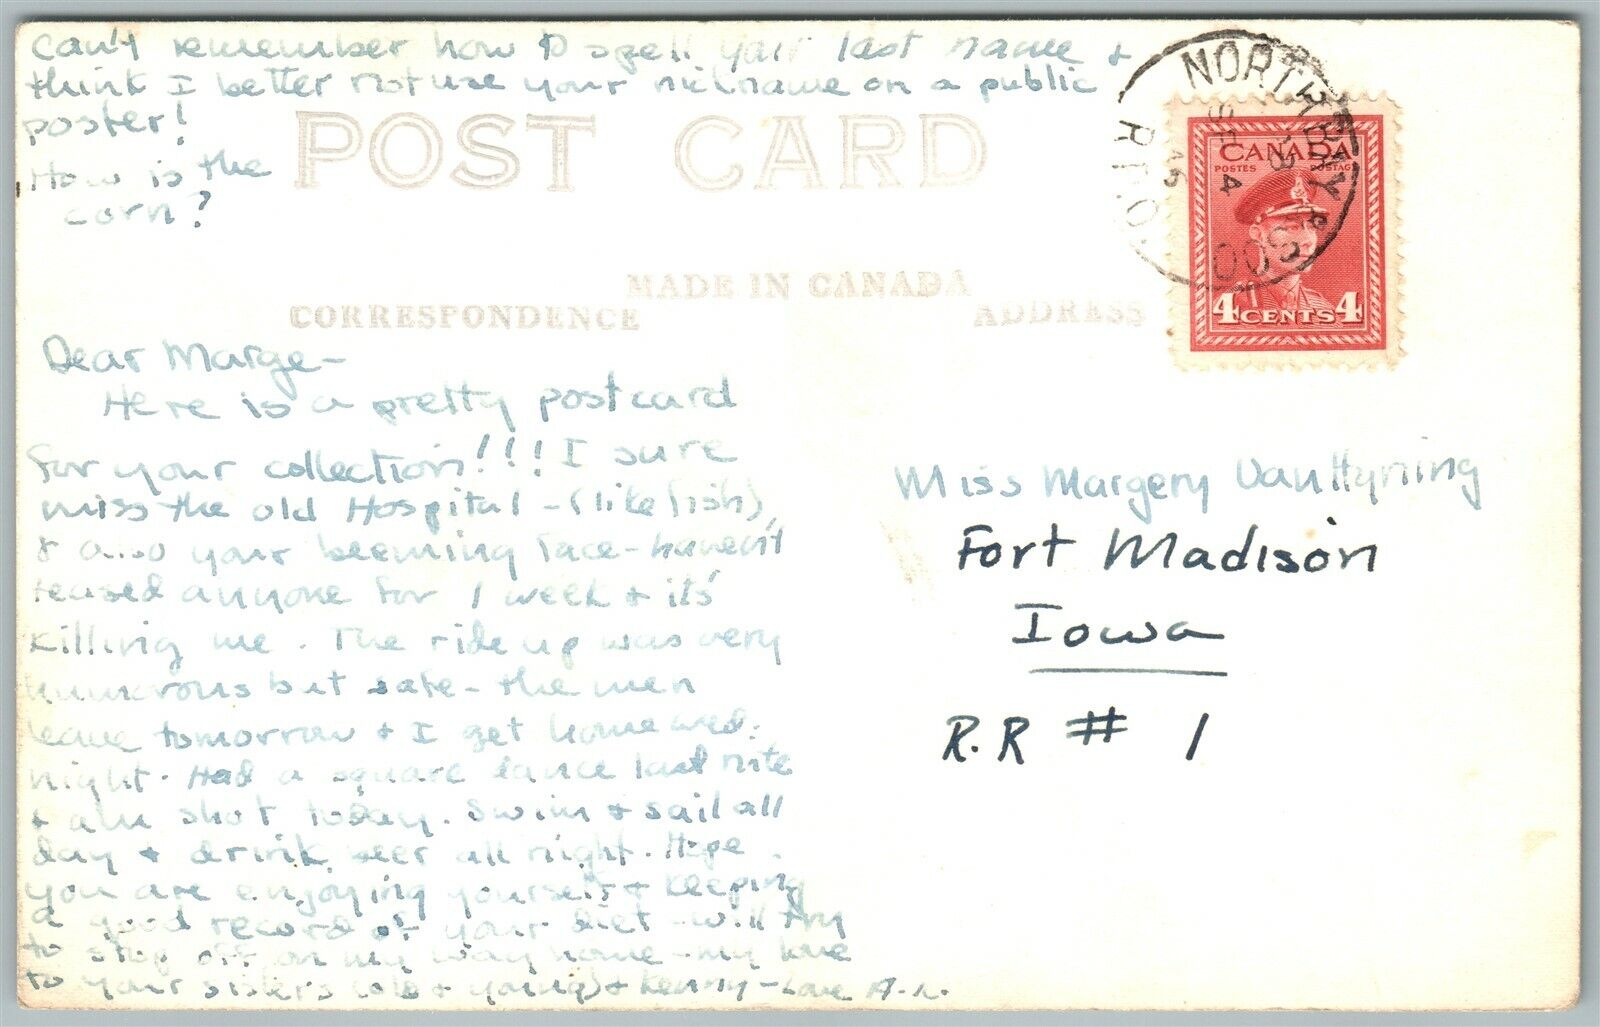 Can't remember how to spell your last name &
think I better not use your nickname on a public
poster!
How is the
corn?
POST CARD
MADE IN CANADA
CORRESPONDENCE
ADDRESS
NORTH BAY &
SOO
SE 4
45
R.P.O.
CANADA
POSTES POSTAGE
4 CENTS 4
Dear Marge-
Here is a pretty postcard
for your collection!!! I sure
miss the old Hospital - (like fish),
& also your beeming face - haven't
teased anyone for 1 week & it's
killing me. The ride up was very
humorous but safe - the men
leave tomorrow & I get home wed.
night. Had a square dance last nite
& am shot today. Swim & sail all
day & drink beer all night. Hope
you are enjoying yourself & keeping
a good record of your diet - will try
to stop off on my way home - my love
to your sisters (old & young) & Kenny - Love A.
Miss Margery VanHyning
Fort Madison
Iowa
R.R # 1